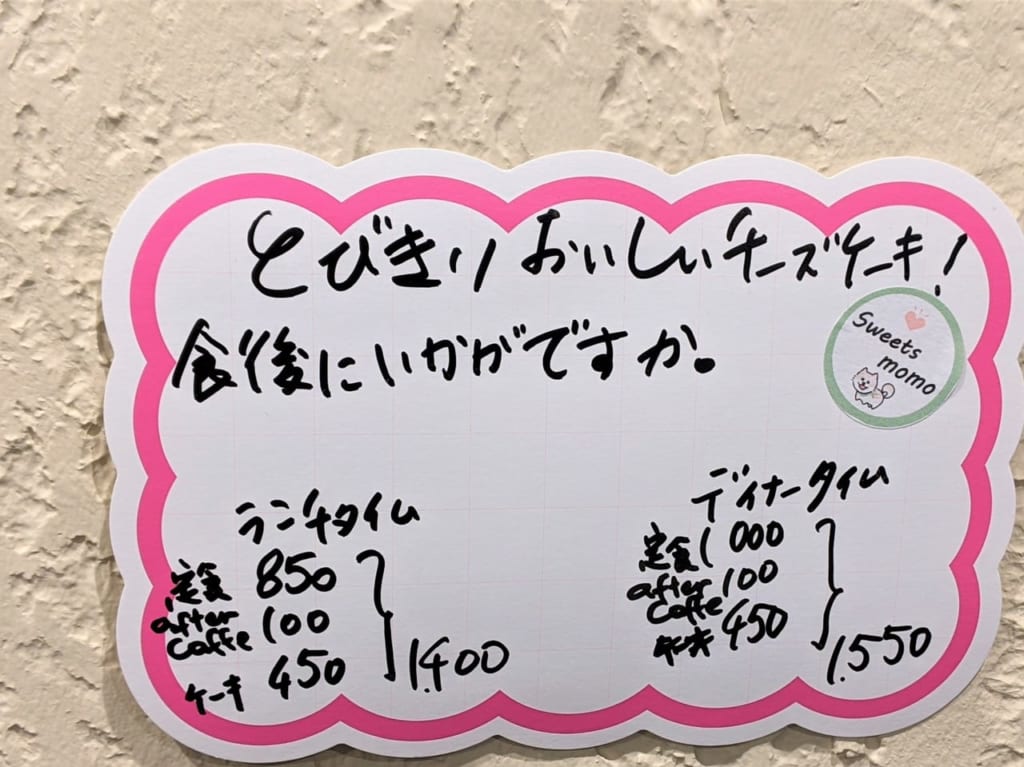 とびきりおいしいチーズケーキ!
食後にいかがですか。
Sweets
momo
ランチタイム
定食 850
after
Caffe 100
ケーキ 450
1.400
ディナータイム
定食 1000
after
Caffe 100
ケーキ 450
1.550